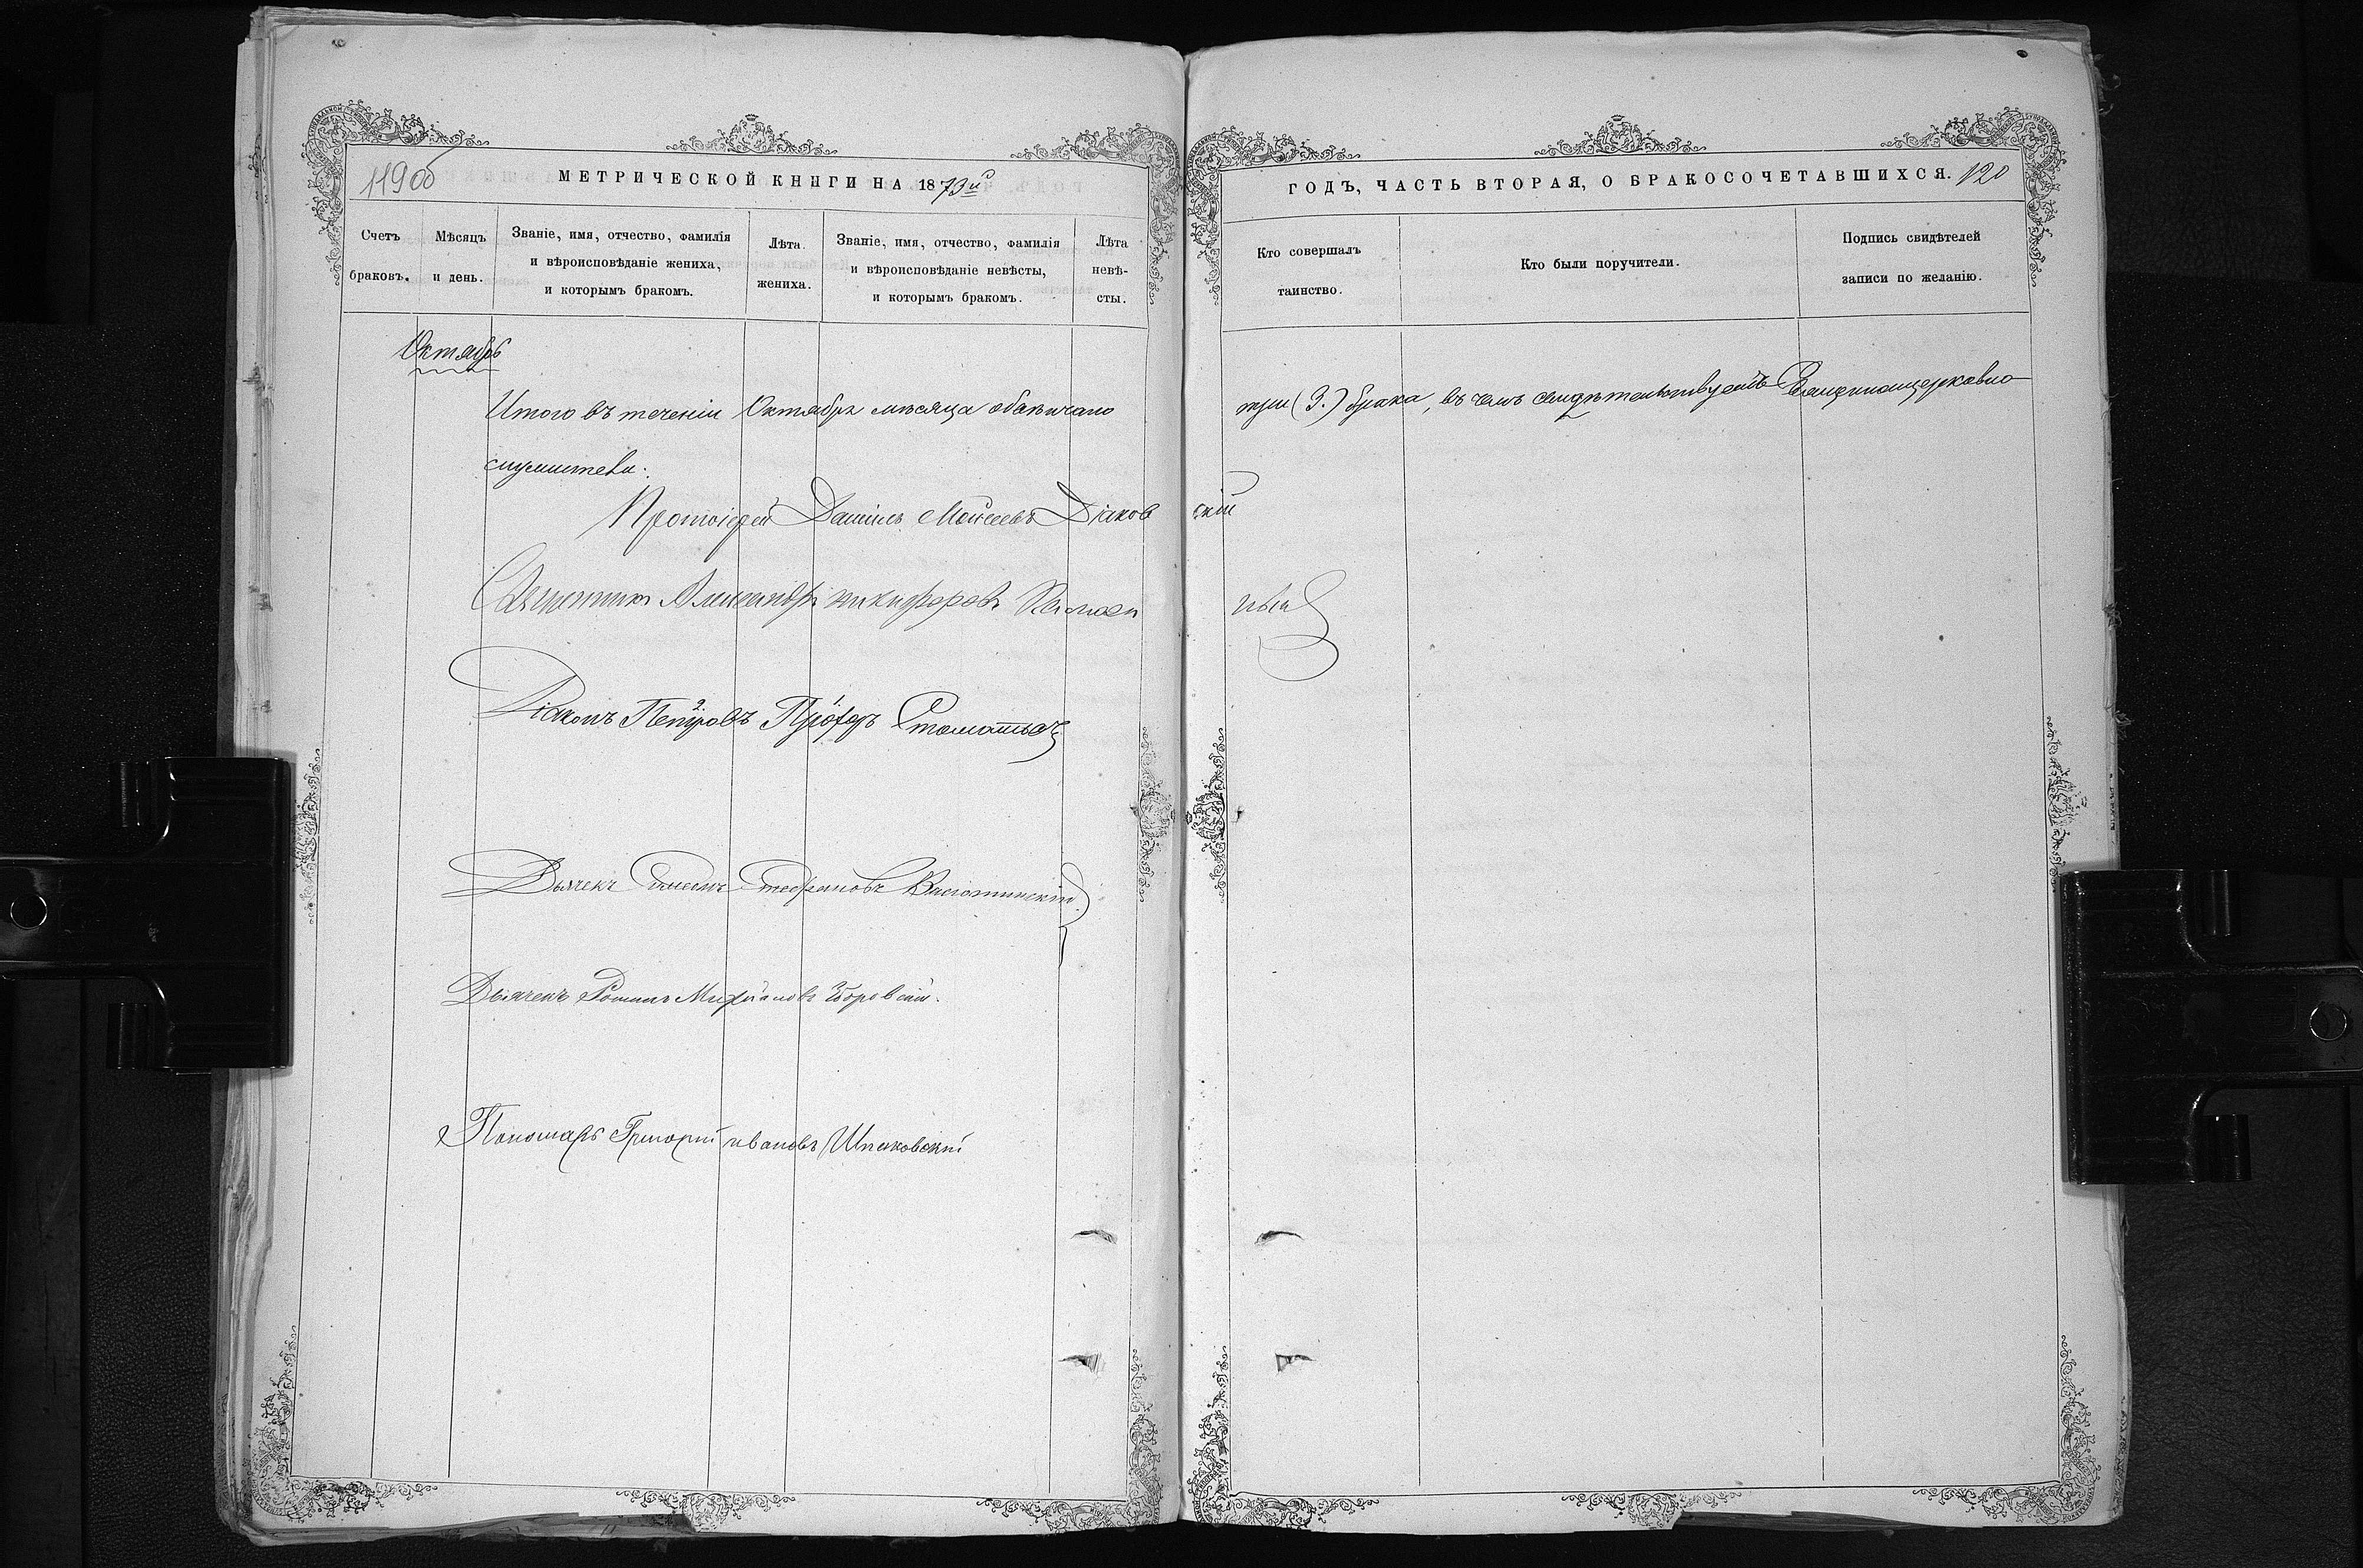 119 об
МЕТРИЧЕСКОЙ КНИГИ НА 1873й
Счетъ браковъ.
Мѣсяцъ и день.
Званіе, имя, отчество, фамилія и вѣроисповѣданіе жениха, и которымъ бракомъ.
Лѣта жениха.
Званіе, имя, отчество, фамилія и вѣроисповѣданіе невѣсты, и которымъ бракомъ.
Лѣта невѣ-сты.
ГОДЪ, ЧАСТЬ ВТОРАЯ, О БРАКОСОЧЕТАВШИХСЯ. 120
Кто совершалъ таинство.
Кто были поручители.
Подпись свидѣтелей записи по желанію.
Октябрь
Итого въ теченіи Октября мѣсяца обвѣнчано три (3.) брака, въ чемъ свидѣтельствуемъ Священноцерковно
служители:
Протоіерей Даніилъ Моѵсеевъ Діаковскій
Священникъ Александръ Никифоровъ
Діаконъ Петровъ 2. Стоматьевъ
Дьячекъ Симеонъ Стефановъ
Дьячекъ Романъ
Пономарь Григорій Ивановъ Шпаковскій